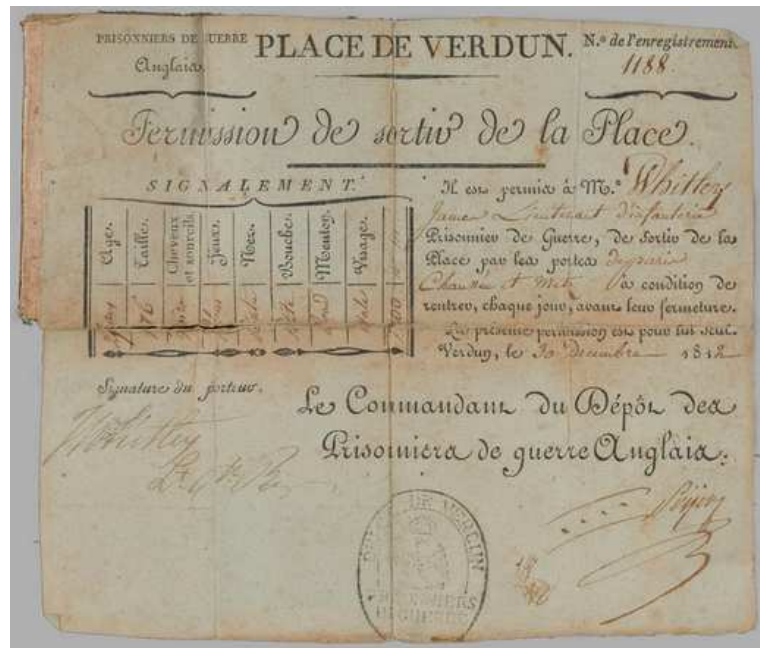 PRISONNIERS DE GUERRE
Anglais.
PLACE DE VERDUN.
N.º de l'enregistrement.
1188.
Permission de sortir de la Place.
SIGNALEMENT.
Age.
Taille.
Cheveux et sourcils.
Yeux.
Nez.
Bouche.
Menton.
Visage.
Il est permis à M.r Whitley
James Lieutenant d'infanterie
Prisonnier de Guerre, de sortir de la
Place par les portes de paris
Chaussée et Metz à condition de
rentrer, chaque jour, avant leur fermeture.
La présente permission est pour lui seul.
Verdun, le 30 decembre 1812
Signature du porteur.
Le Commandant du Dépôt des
Prisonniers de guerre Anglais.
Whitley
DE VERDUN
PRISONNIERS
DE GUERRE